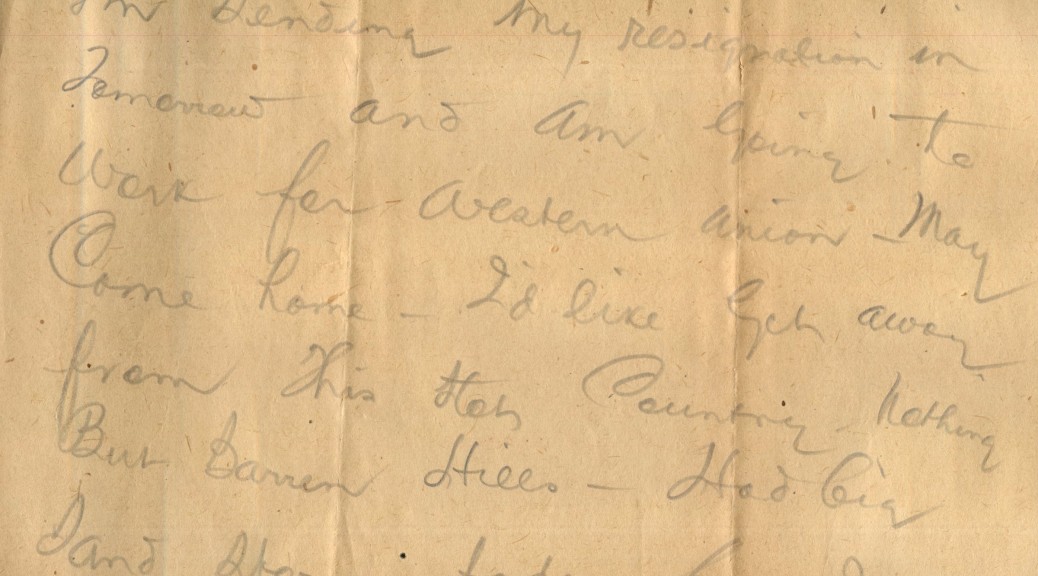 Im Sending My resignation in
Tomorrow and am Going to
Work for Western Union - May
Come home - I'd like Get away
from This Hot Country - Nothing
But Barren Hills - Had big
Sand